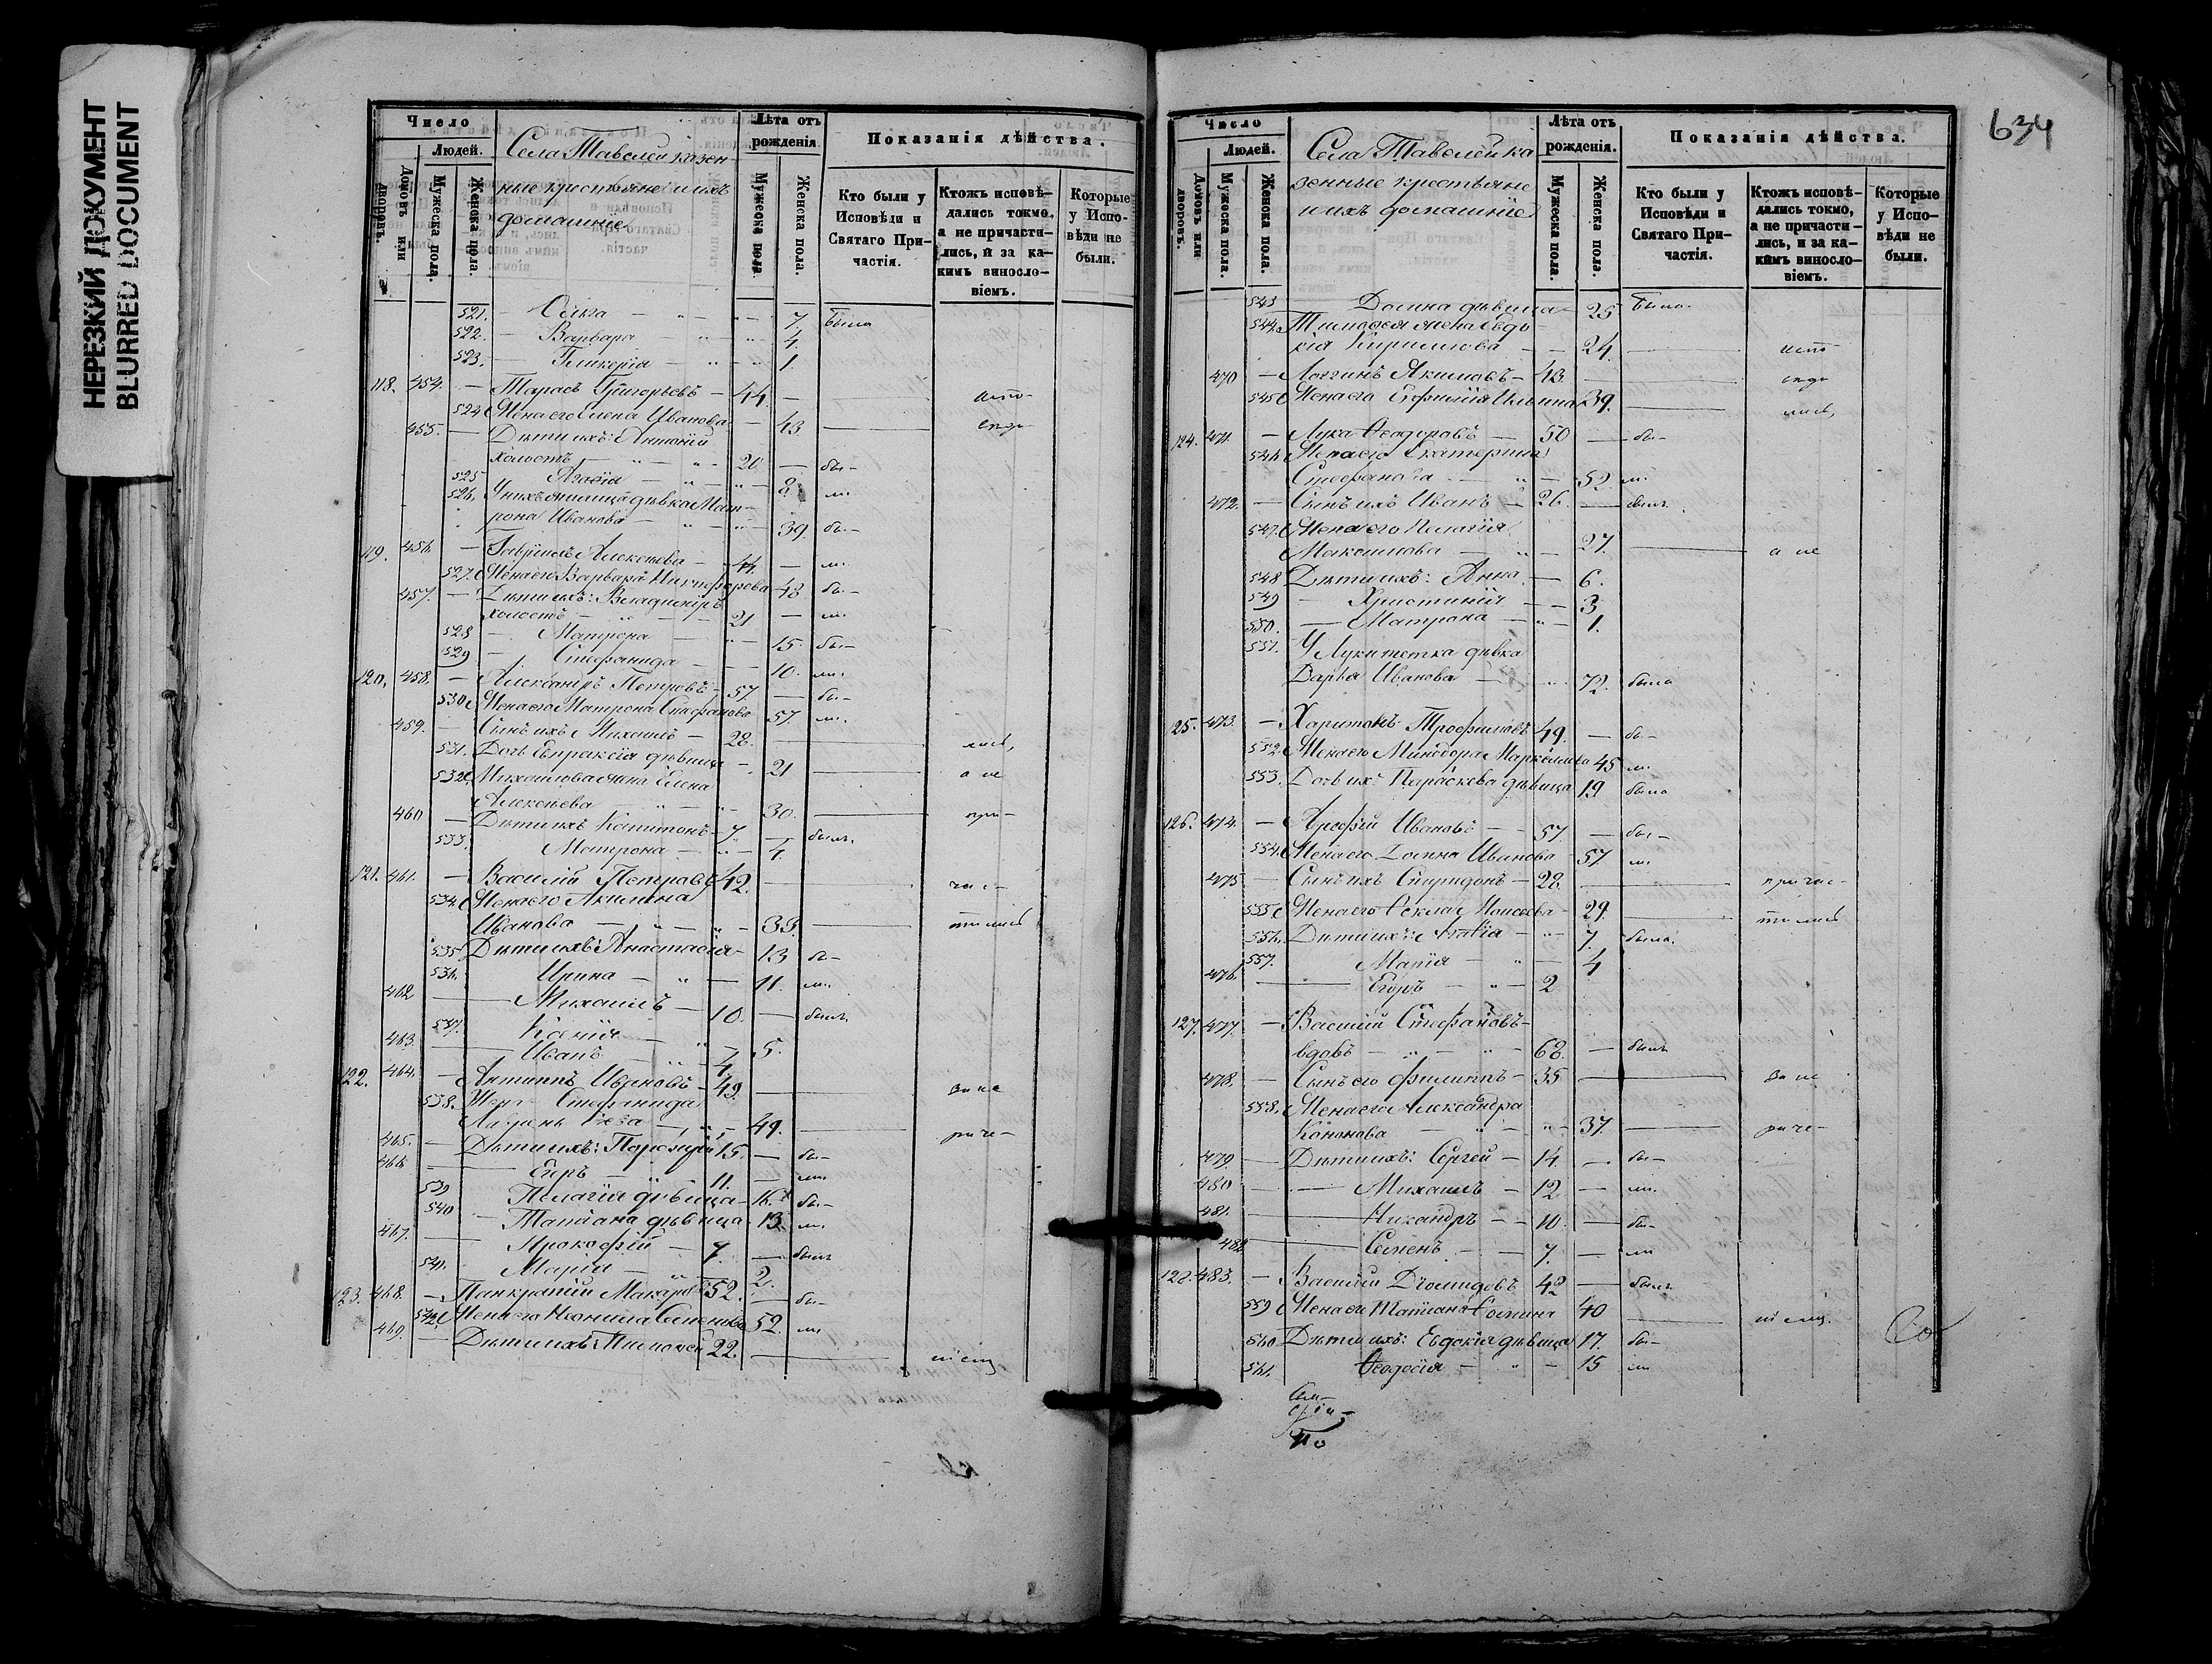 НЕРЕЗКИЙ ДОКУМЕНТ
BLURRED DOCUMENT
Число
Людей.
Домовъ или дворовъ.
Мужеска пола.
Женска пола.
Села Тавелей казен-
ные крестьяне и ихъ
домашніе
Лѣта отъ рожденія.
Мужеска пола.
Женска пола.
Показанія дѣйства.
Кто были у Исповѣди и Святаго Причастія.
Ктожъ исповѣ-
дались токмо,
а не причасти-
лись, и за ка-
кимъ винosло-
віемъ.
Которые
у Испо-
вѣди не
были.
521. — Ольга — 7. была
522. — Варвара — 4.
523. — Гликерія — 1.
118. 454. — Тарасъ Григорьевъ — 44. — испо-
524 Жена его Елена Иванова — 43 — вѣда-
455. — Дѣти ихъ: Антоній
холостъ — 20 — бы-
525 Агафія — 8. ли.
526. У нихъ жилица дѣвка Мат-
рона Иванова — 39. бы-
119. 456. — Гавріилъ Алексѣевъ — 44. — ли.
527. Жена его Варвара Никифорова 48 бы-
457. — Дѣти ихъ: Владиміръ
холостъ — 21 — ли.
528 — Матрона — 15. бы-
529 — Стефанида — 10. ли.
120. 458. — Александръ Петровъ — 57 — бы-
530. Жена его Матрона Стефанова 57. ли.
459. — Сынъ ихъ Михаилъ — 28. — лись,
531. Дочь Евпраксія дѣвица — 21 — а не
532. Михаилова жена Елена
Алексѣева — 30. — при-
460 — Дѣти ихъ Капитонъ — 7. — былъ.
533. Матрона — 4.
121. 461. — Василій Петровъ 42. — час-
534. Жена его Акилина
Иванова — 33. — тились
535 Дѣти ихъ: Анастасія — 13 бы-
536. Ирина — 11. ли.
462 — Михаилъ — 10. — былъ.
537. Ксенія — 5.
463. — Иванъ — 4.
122. 464. — Антипъ Ивановъ — 49. — за не
538. Жена Стефанида
49. — раче-
465. — Дѣти ихъ: Порфирій 15. — бы-
466 — Егоръ — 11. — ли
539 Пелагія дѣвица — 16 бы-
540 — Татіана дѣвица 13. ли.
467. — Прокофій — 7. — былъ
541. Марія — 2.
123. 468. — Панкратій Макаровъ 52. — бы-
542 Жена его Неонила Семенова 52. ли
469. — Дѣти ихъ: Тимофей 22. — ніемъ
634
Число
Людей.
Домовъ или дворовъ.
Мужеска пола.
Женска пола.
Села Тавелей ка-
зенные крестьяне
и ихъ домашніе
Лѣта отъ рожденія.
Мужеска пола.
Женска пола.
Показанія дѣйства.
Кто были у Исповѣди и Святаго Причастія.
Ктожъ исповѣ-
дались токмо,
а не причасти-
лись, и за ка-
кимъ винosло-
віемъ.
Которые
у Испо-
вѣди не
были.
543 Домна дѣвица — 25 была.
544. Тимофея жена Евдо-
кія Кирилова — 24. — испо-
470 — Логгинъ Акимовъ — 43. — вѣда-
545 Жена его Евфимія Ильина 39. — лись,
124. 471. — Лука Ѳеодоровъ — 50 — бы-
546 Жена его Екатерина
Стефанова — 52 ли.
472. — Сынъ ихъ Иванъ — 26. — былъ.
547. Жена его Пелагія
Максимова — 27. — а не
548 Дѣти ихъ: Анна — 6.
549 — Христинія — 3.
550. — Матрона — 1.
551. У Луки тетка дѣвка
Дарья Иванова — 72. была
125. 473. — Харитонъ Трофимовъ 49. — бы-
552 Жена его Минодора Маркелова 45 ли.
553. Дочь ихъ Параскева дѣвица 19 была
126. 474. — Арефій Ивановъ — 57. — бы-
554. Жена его Домна Иванова — 57. ли.
475 — Сынъ ихъ Спиридонъ — 28. — причас-
555 Жена его Ѳекла Моисеева — 29. — тились
556. Дѣти ихъ: Агафія — 7. была.
557. Марія — 4
476. — Егоръ — 2
127. 477. — Василій Стефановъ —
вдовъ — 68. — былъ
478. — Сынъ его Филиппъ — 35 — за не
558. Жена его Александра
Кононова — 37. — раче-
479. — Дѣти ихъ: Сергей — 14. — бы-
480 — Михаилъ — 12. — ли.
481. — Никандръ — 10. — бы-
482 — Семенъ — 7. — ли
128. 483. — Василій Діомидовъ 42 — былъ
559 Жена его Татіана 40 — ніемъ.
560 Дѣти ихъ: Евдокія дѣвица 17. бы-
561. Ѳеодосія — 15 ли